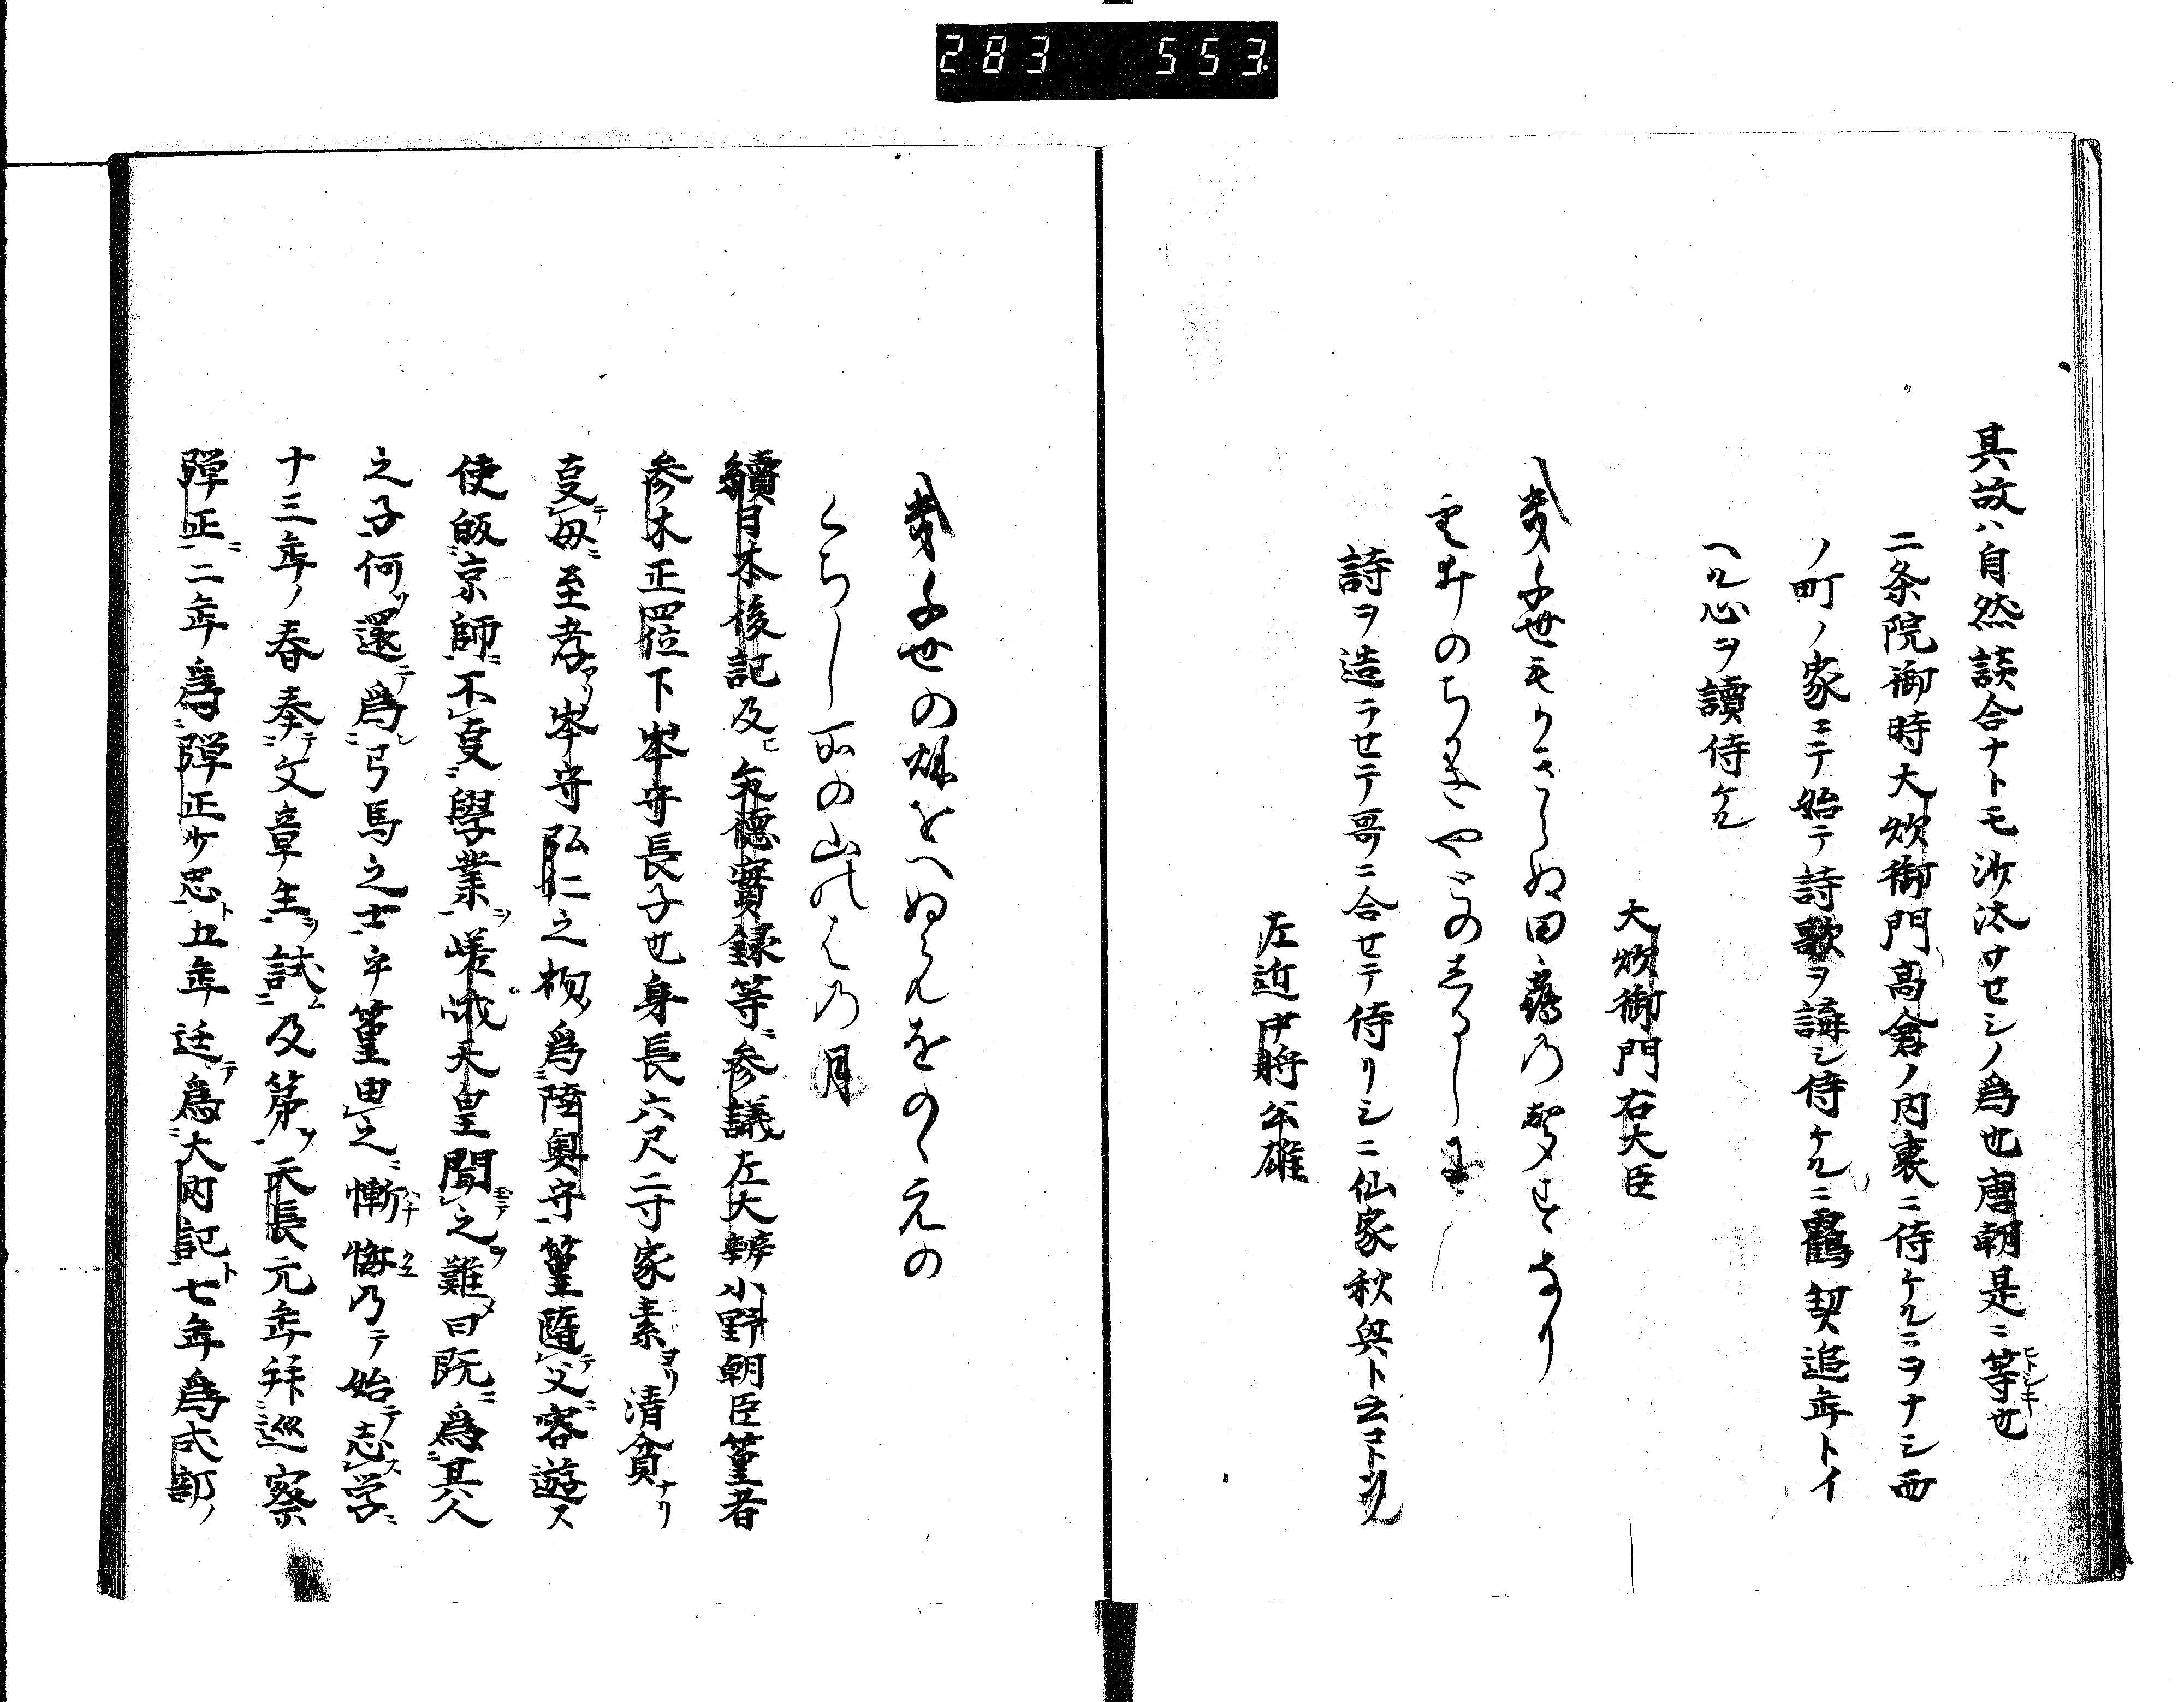 283 553.
其故ハ自然談合ナトモ沙汰サセシノ為也唐朝是ニ等也
二条院御時大炊御門高倉ノ内裏ニ侍ケルニヲナシ西
ノ町ノ家ニテ始テ詩歌ヲ講シ侍ケルニ鶴契追年トイ
ヘル心ヲ讀侍ケル
大炊御門右大臣
幾千世モ
のちきやとのしるしに
詩ヲ造ラセテ哥ニ合セテ侍リシニ仙家秋興ト云コトヲ
左近中将公雄
幾千世の秋をへぬらんをのゝえの
くちし所の山のはの月
續日本後記及ヒ文德實録等ニ参議左大辨小野朝臣篁者
参木正四位下岑守長子也身長六尺二寸家素ヨリ清貧ナリ
叓テ母ニ至孝アリ岑守弘仁之初メ為陸奥守篁隨テ父ニ客遊ス
使皈京師ニ不叓學業ヲ嵯峨天皇聞之ヲ難メ曰既ニ為其人
之子何ソ還テ為弓馬之士乎篁由之ニ慚悔乃テ始テ志ス学ニ
十三年ノ春奉テ文章生ノ試ニ及第ソ天長元年拜巡察
弾正ニ二年為弾正少忠ト五年迁テ為大内記ト七年為式部ノ